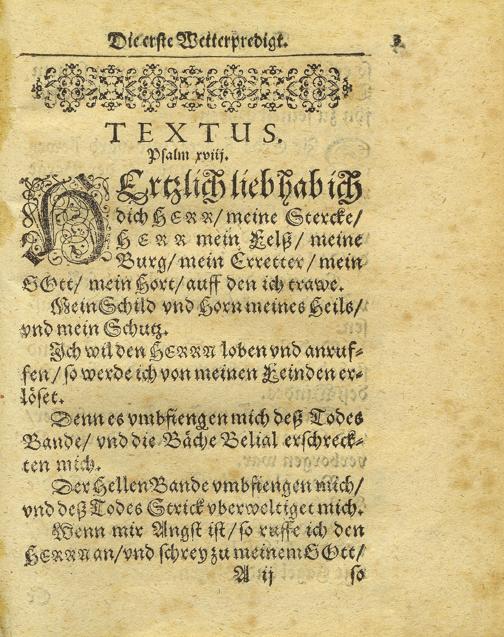 Die erste Wetterpredigt. 3
TEXTUS.
Psalm xviij.
HErtzlich lieb hab ich
dich HERR/ meine Stercke/
HERR mein Felß/ meine
Burg/ mein Erretter/ mein
GOtt/ mein Hort/ auff den ich trawe.
Mein Schild vnd Horn meines Heils/
vnd mein Schutz.
Ich wil den HERRN loben vnd anruf-
fen/ so werde ich von meinen Feinden er-
löset.
Denn es vmbfiengen mich deß Todes
Bande/ vnd die Bäche Belial erschreck-
ten mich.
Der Hellen Bande vmbfiengen mich/
vnd deß Todes Strick vberweltiget mich.
Wenn mir Angst ist/ so ruffe ich den
HERRN an/ vnd schrey zu meinem GOtt/
A ij so